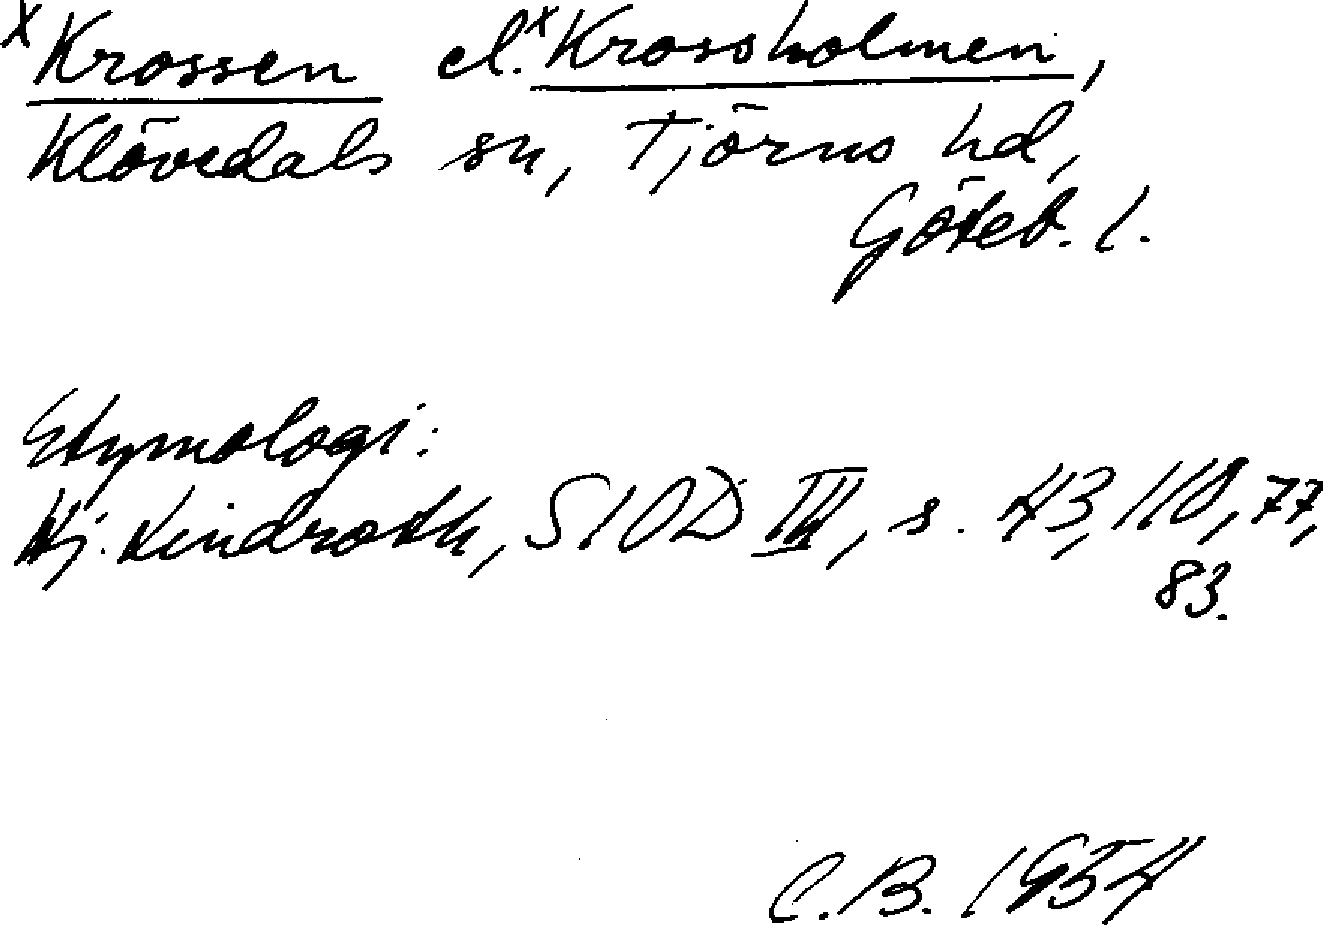 x Krossen el. x Krossholmen,
Klövedals sn, Tjörns hd,
Göteb. l.
Etymologi:
Hj. Lindroth, SIOD III, s. 43, 110, 77,
83.
C.B. 1954